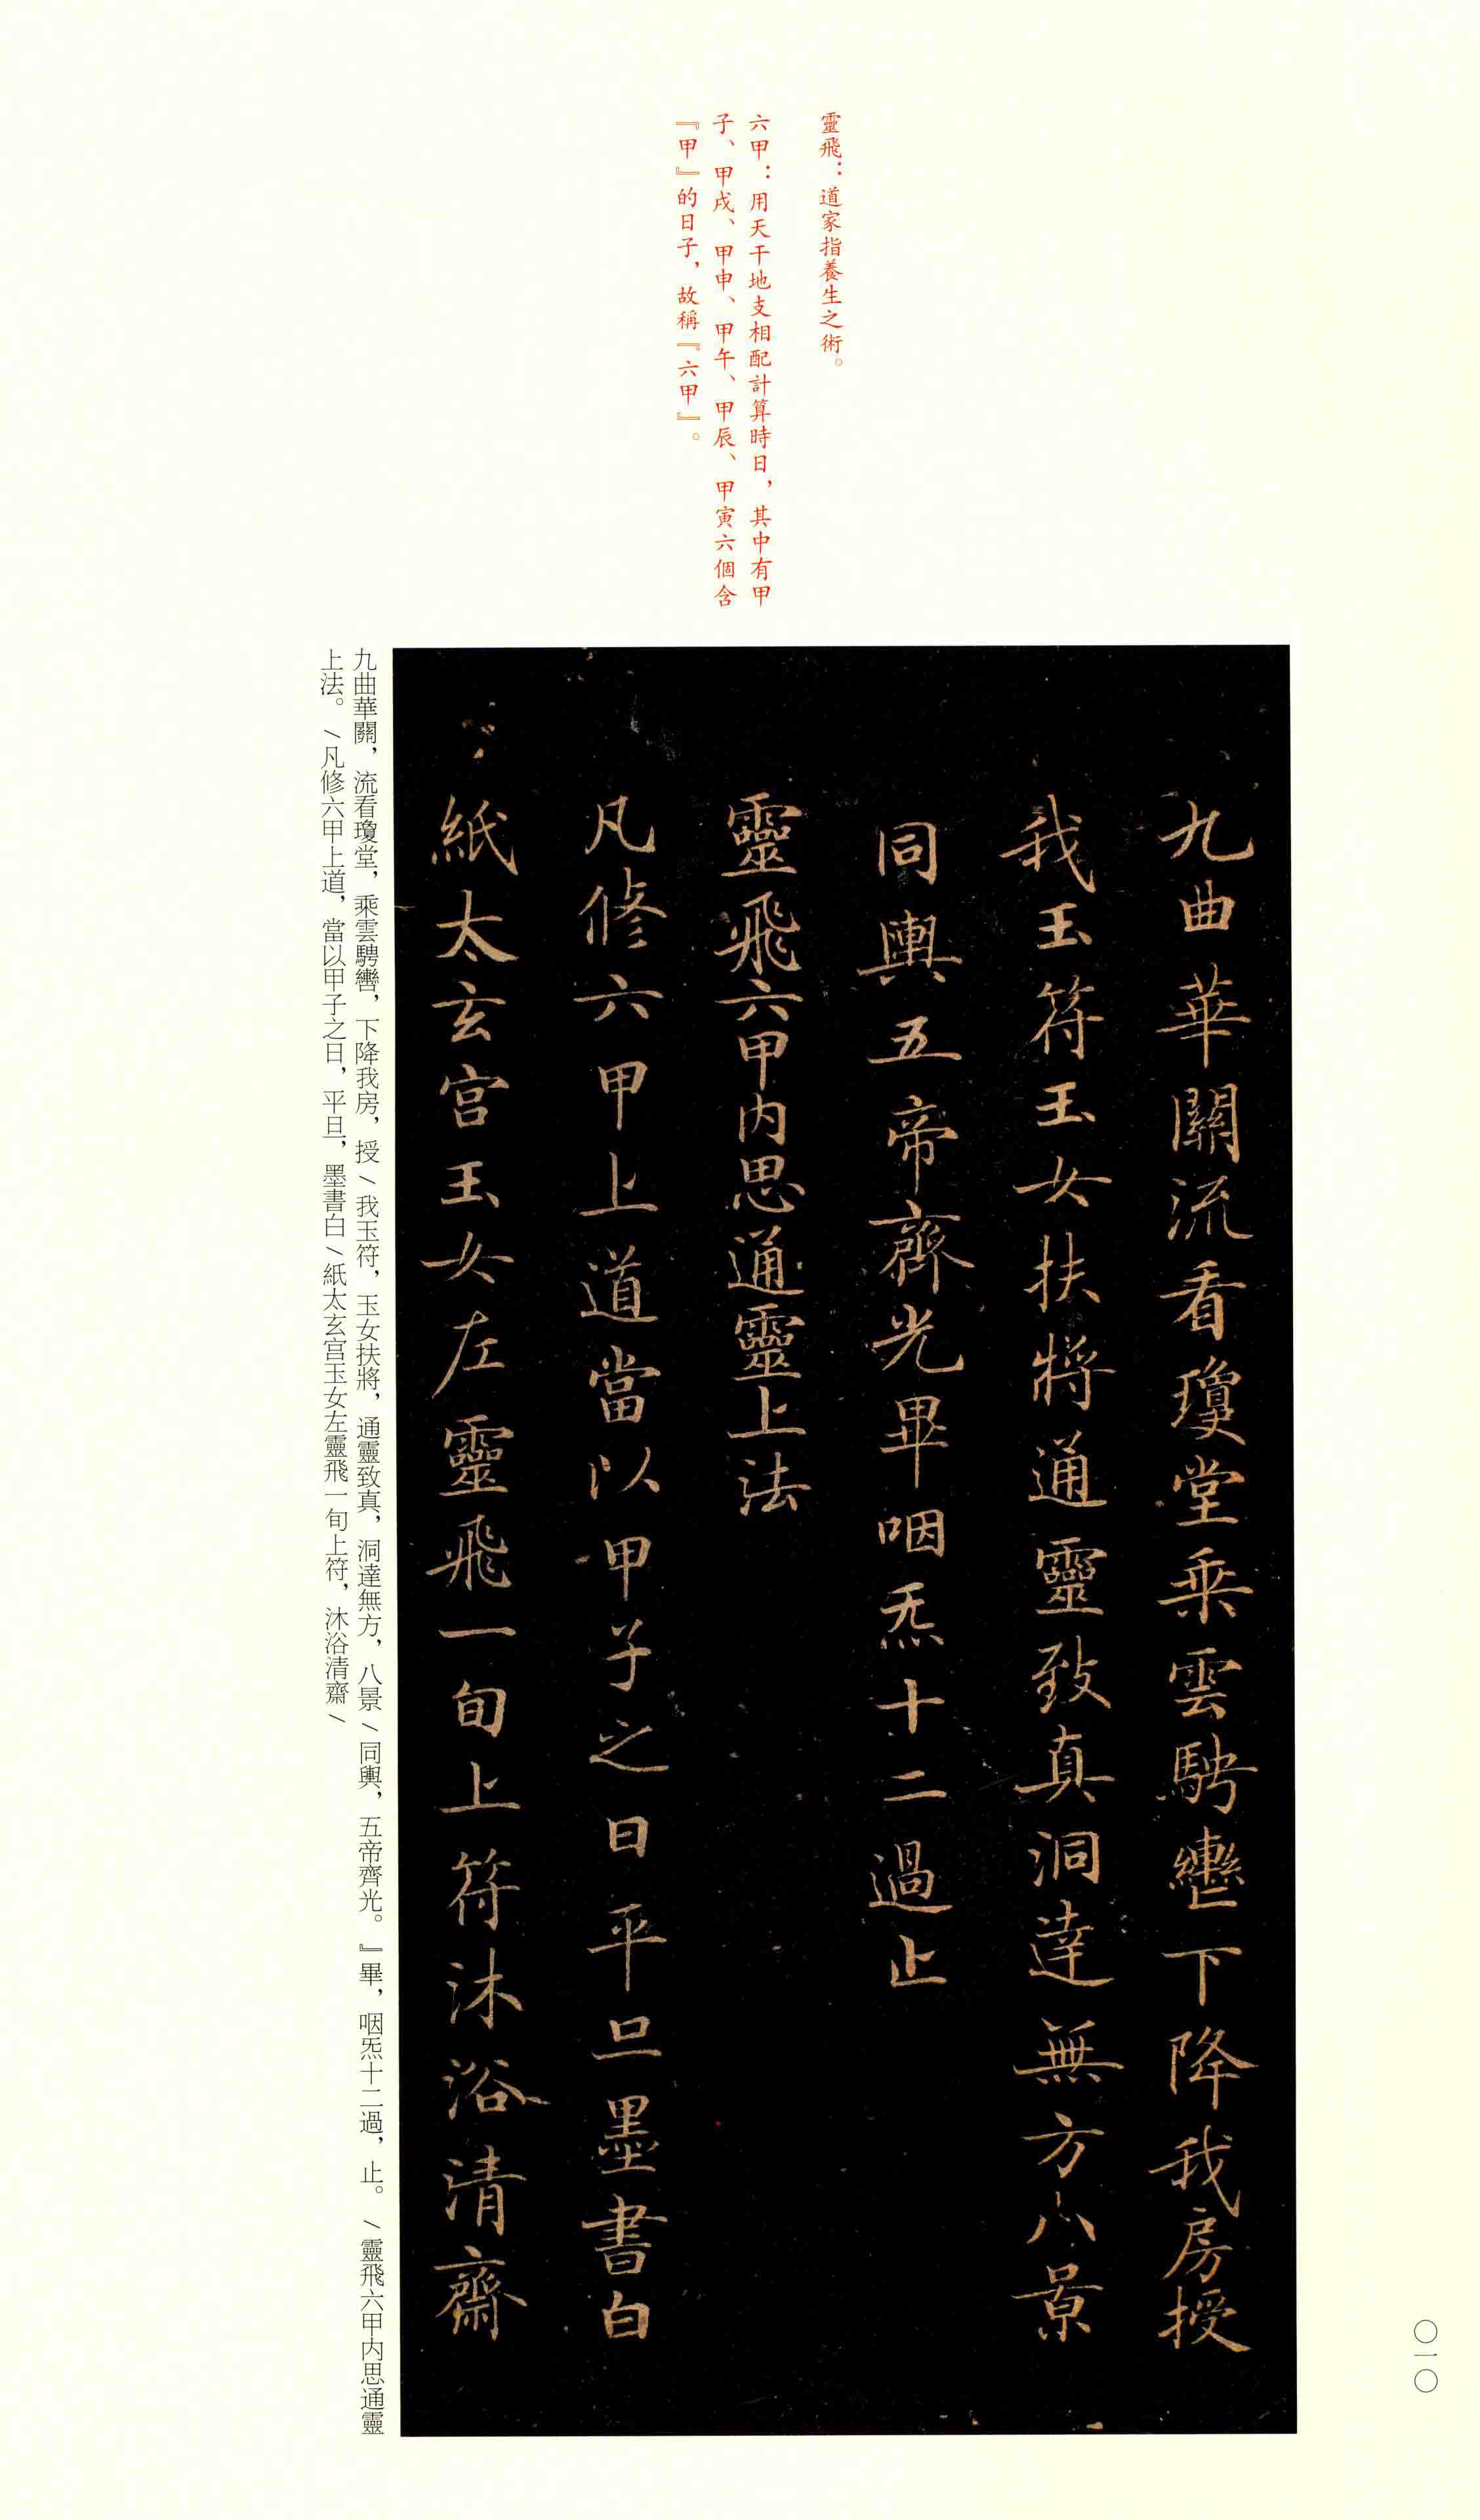 靈飛：道家指養生之術。
六甲：用天干地支相配計算時日，其中有甲
子、甲戌、甲申、甲午、甲辰、甲寅六個含
『甲』的日子，故稱『六甲』。
九曲華關流看瓊堂乘雲騁轡下降我房授
我玉符玉女扶將通靈致真洞達無方八景
同輿五帝齊光畢咽炁十二過止
靈飛六甲內思通靈上法
凡修六甲上道當以甲子之日平旦墨書白
紙太玄宮玉女左靈飛一旬上符沐浴清齋
九曲華關，流看瓊堂，乘雲騁轡，下降我房，授／我玉符，玉女扶將，通靈致真，洞達無方，八景／同輿，五帝齊光。』畢，咽炁十二過，止。／靈飛六甲内思通靈
上法。／凡修六甲上道，當以甲子之日，平旦，墨書白／紙太玄宫玉女左靈飛一旬上符，沐浴清齋／
〇一〇